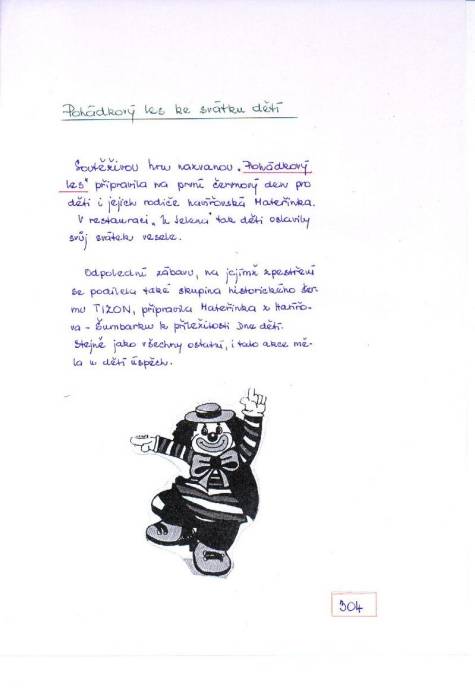 Pohádkový les ke svátku dětí
Soutěživou hru nazvanou „Pohádkový
les" připravila na první červnový den pro
děti i jejich rodiče havířovská Mateřinka.
V restauraci „U Jelena" tak děti oslavily
svůj svátek vesele.
Odpolední zábavu, na jejímž zpestření
se podílela také skupina historického šer-
mu TIZON, připravila Mateřinka z Havířo-
va - Šumbarku k příležitosti Dne dětí.
Stejně jako všechny ostatní, i tato akce mě-
la u dětí úspěch.
304